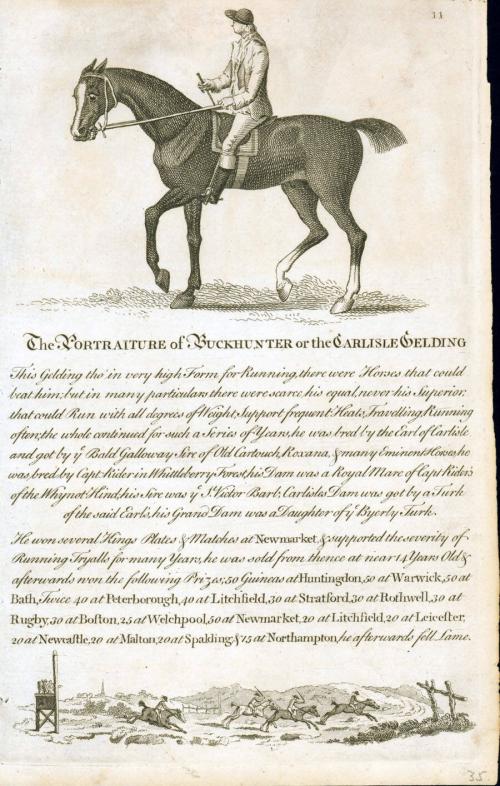 11
The PORTRAITURE of BUCKHUNTER or the CARLISLE GELDING
This Gelding tho' in very high Form for Running, there were Horses that could
beat him; but in many particulars there were scarce his equal, never his Superior;
that could Run with all degrees of Weight, Support frequent Heats, Travelling, Running
often; the whole continued for such a Series of Years, he was bred by the Earl of Carlisle
and got by yᵉ Bald Galloway Sire of Old Cartouch, Roxana, & many Eminent Horses, he
was bred by Capt. Rider in Whittleberry Forest, his Dam was a Royal Mare of Capt Rider's
of the Whynot Kind, his Sire was yᵉ Sᵗ. Victor Barb; Carlisle's Dam was got by a Turk
of the said Earl's, his Grand Dam was a Daughter of yᵉ Byerly Turk.
He won several Kings Plates & Matches at Newmarket, & supported the severity of
Running Tryalls for many Years, he was sold from thence at near 14 Years Old &
afterwards won the following Prizes, 50 Guineas at Huntingdon, 50 at Warwick, 50 at
Bath, Twice 40 at Peterborough, 40 at Litchfield, 30 at Stratford, 30 at Rothwell, 30 at
Rugby, 30 at Boston, 25 at Welchpool, 50 at Newmarket, 20 at Litchfield, 20 at Leicester,
20 at Newcastle, 20 at Malton, 20 at Spalding, & 75 at Northampton, he afterwards fell Lame.
35.